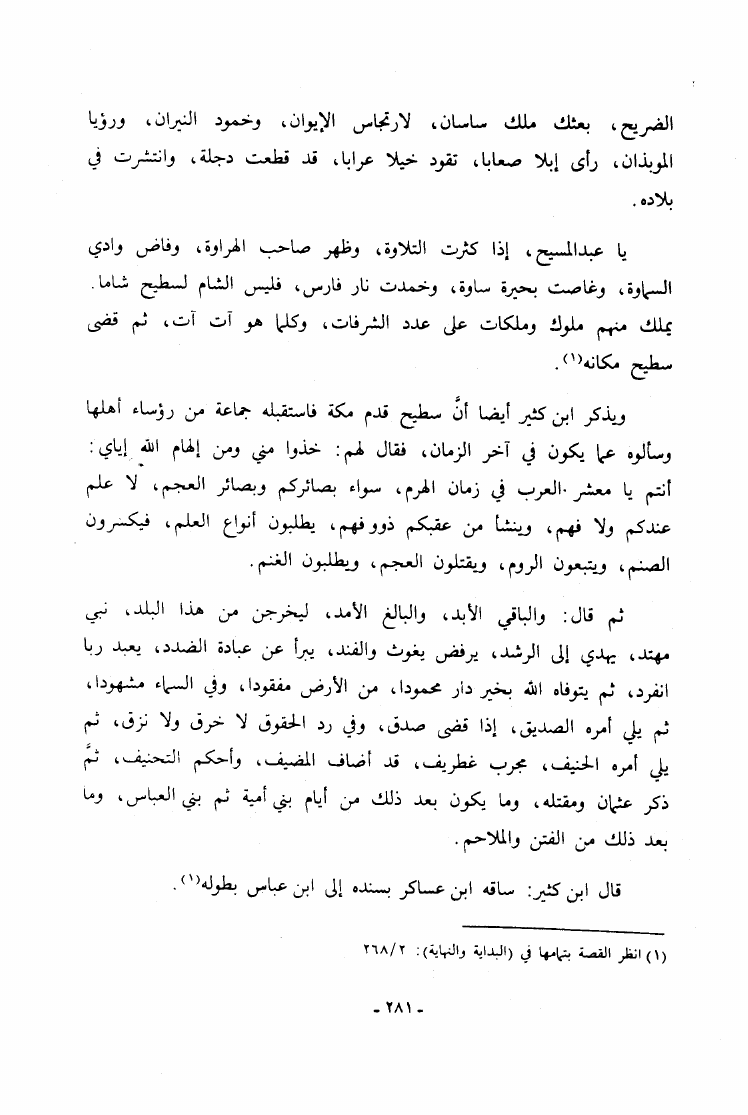 الضريح، بعثك ملك ساسان، لارتجاس الإيوان، وخمود النيران، ورؤيا
الموبذان، رأى إبلا صعابا، تقود خيلا عرابا، قد قطعت دجلة، وانتشرت في
بلاده.
يا عبدالمسيح، إذا كثرت التلاوة، وظهر صاحب الهراوة، وفاض وادي
السماوة، وغاصت بحيرة ساوة، وخمدت نار فارس، فليس الشام لسطيح شاما.
يملك منهم ملوك وملكات على عدد الشرفات، وكلما هو آت آت، ثم قضى
سطيح مكانه(١).
ويذكر ابن كثير أيضا أنَّ سطيح قدم مكة فاستقبله جماعة من رؤساء أهلها
وسألوه عما يكون في آخر الزمان، فقال لهم: خذوا مني ومن إلهام الله إياي:
أنتم يا معشر العرب في زمان الهرم، سواء بصائركم وبصائر العجم، لا علم
عندكم ولا فهم، وينشأ من عقبكم ذوو فهم، يطلبون أنواع العلم، فيكسرون
الصنم، ويتبعون الروم، ويقتلون العجم، ويطلبون الغنم.
ثم قال: والباقي الأبد، والبالغ الأمد، ليخرجن من هذا البلد، نبي
مهتد، يهدي إلى الرشد، يرفض يغوث والفند، يبرأ عن عبادة الضدد، يعبد ربا
انفرد، ثم يتوفاه الله بخير دار محمودا، من الأرض مفقودا، وفي السماء مشهودا،
ثم يلي أمره الصديق، إذا قضى صدق، وفي رد الحقوق لا خرق ولا نزق، ثم
يلي أمره الحنيف، مجرب غطريف، قد أضاف المضيف، وأحكم التحنيف، ثمَّ
ذكر عثمان ومقتله، وما يكون بعد ذلك من أيام بني أمية ثم بني العباس، وما
بعد ذلك من الفتن والملاحم.
قال ابن كثير: ساقه ابن عساكر بسنده إلى ابن عباس بطوله(١).
(١) انظر القصة بتمامها في (البداية والنهاية): ٢٦٨/٢
- ٢٨١ -